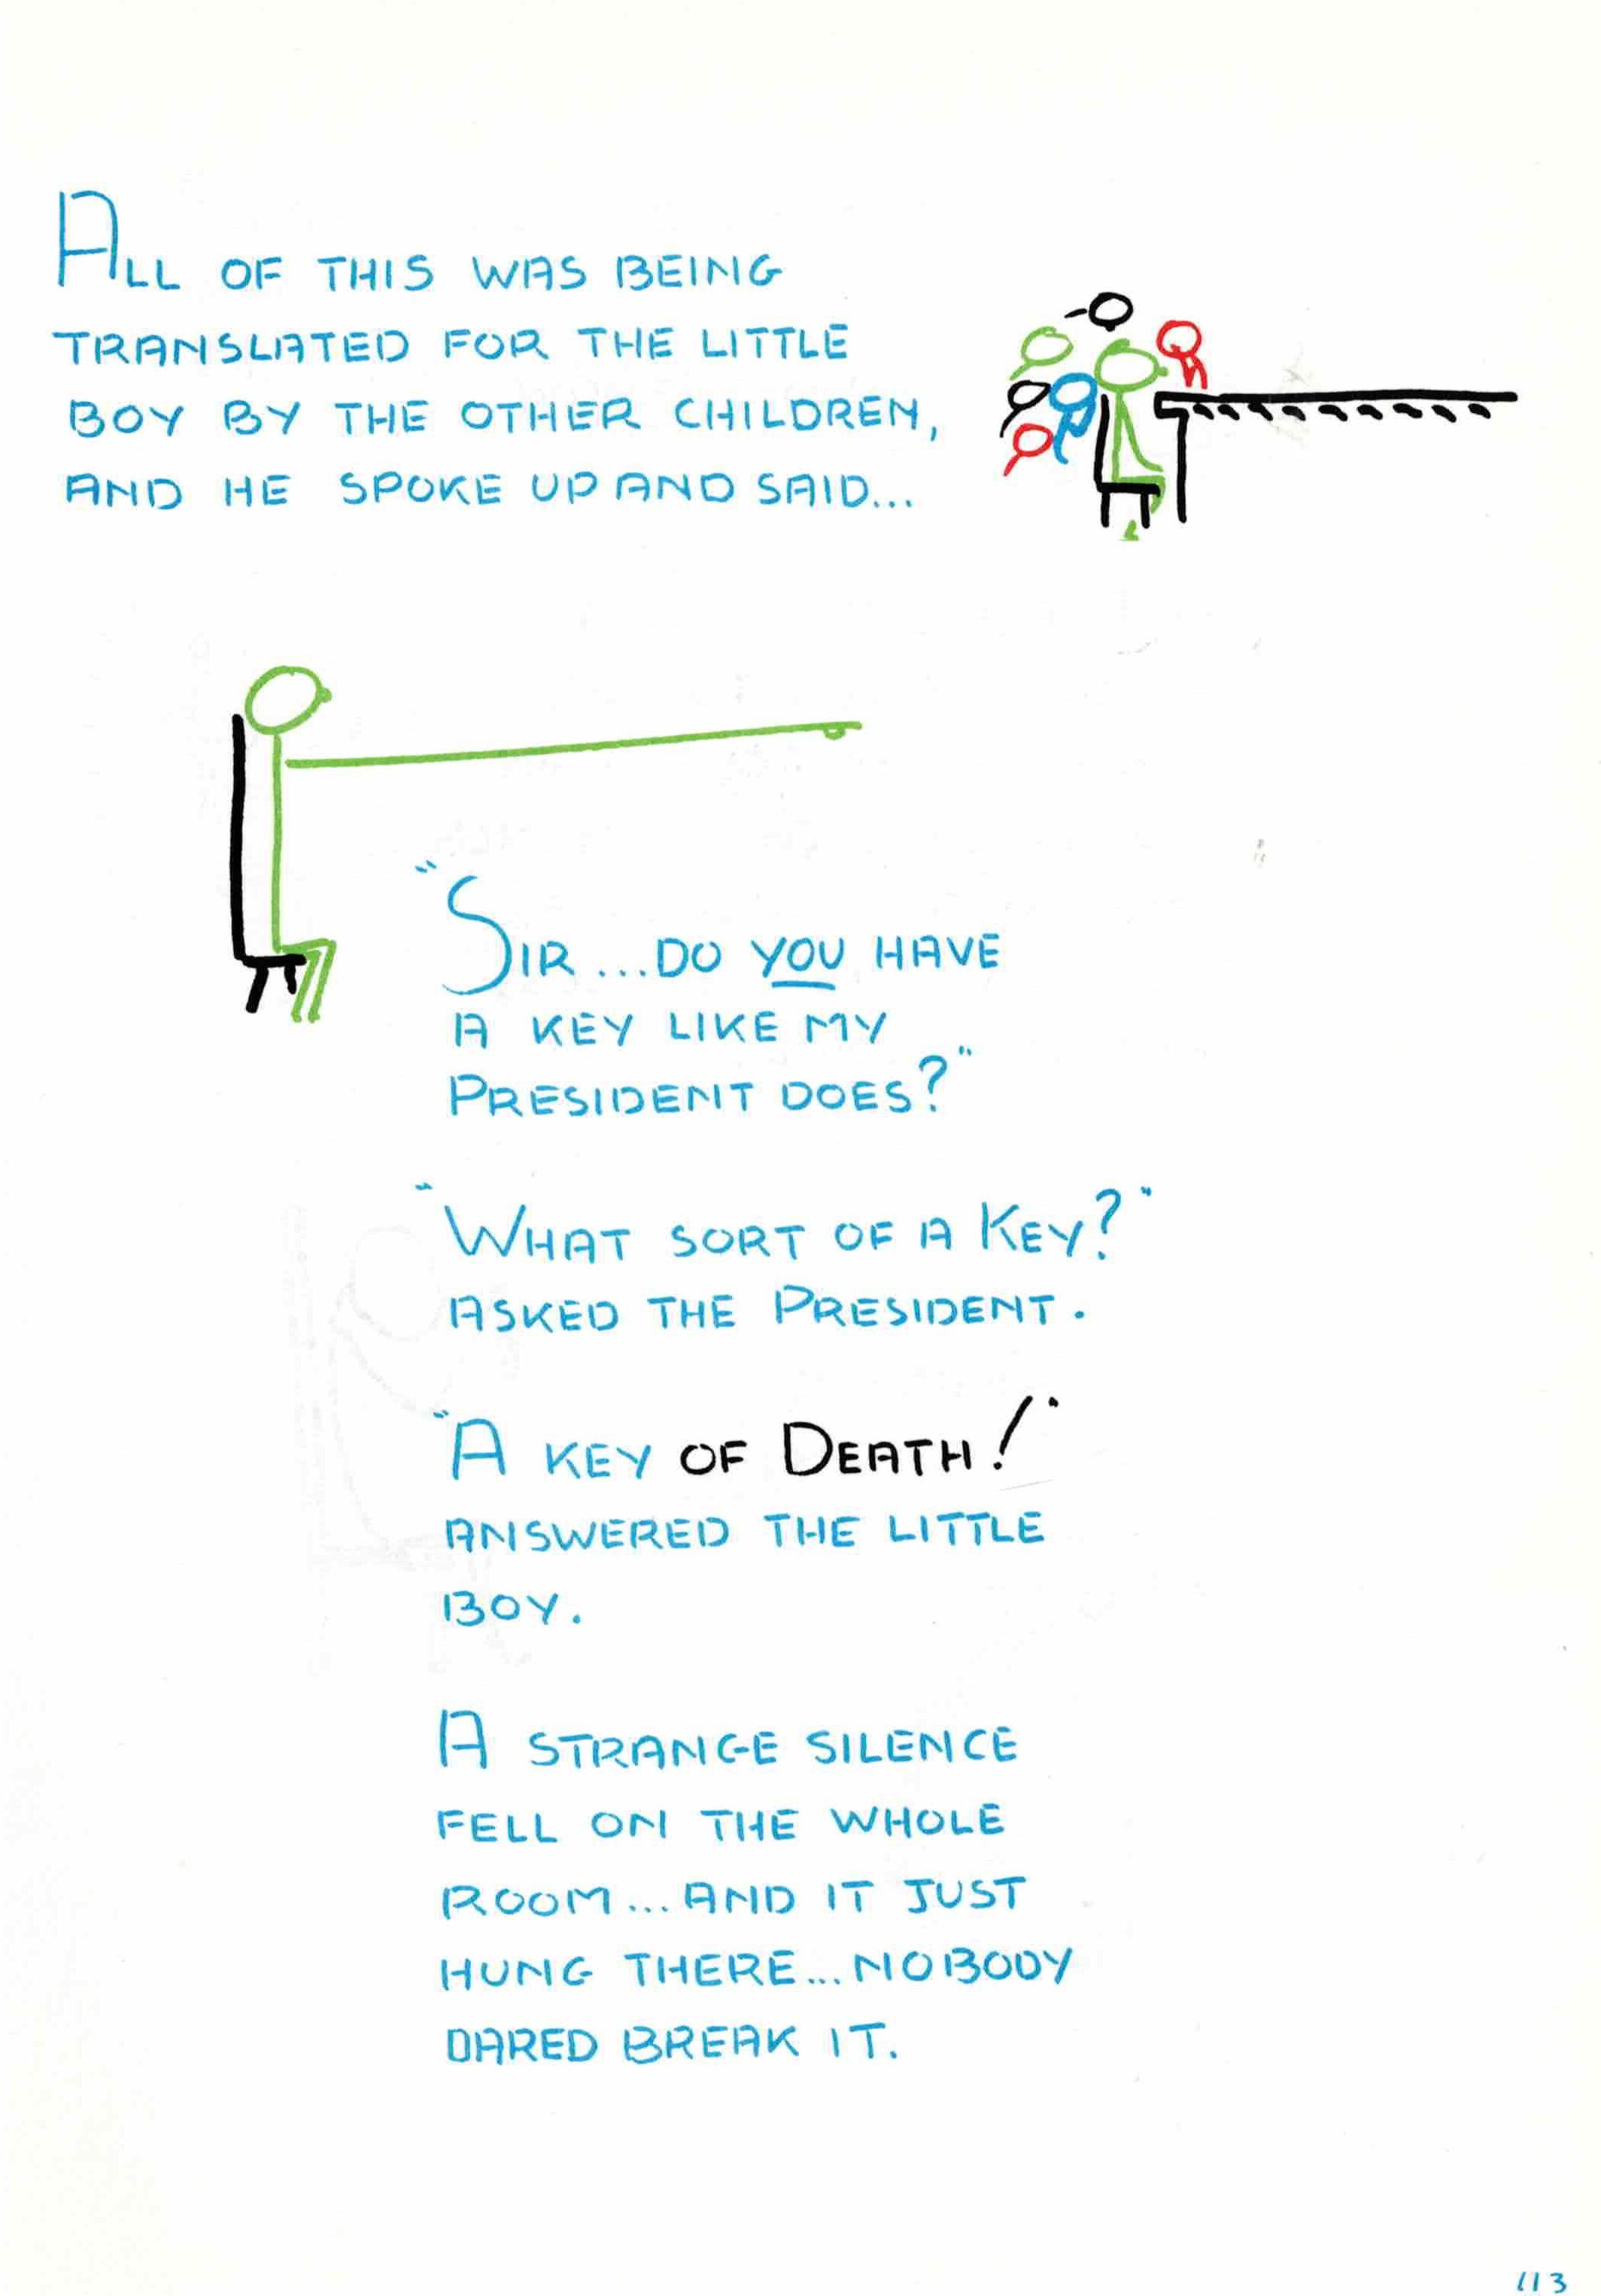 All of this was being
translated for the little
boy by the other children,
and he spoke up and said...
"Sir...do you have
a key like my
President does?"
"What sort of a Key?"
asked the President.
"A key of Death!"
answered the little
boy.
A strange silence
fell on the whole
room...and it just
hung there...nobody
dared break it.
113